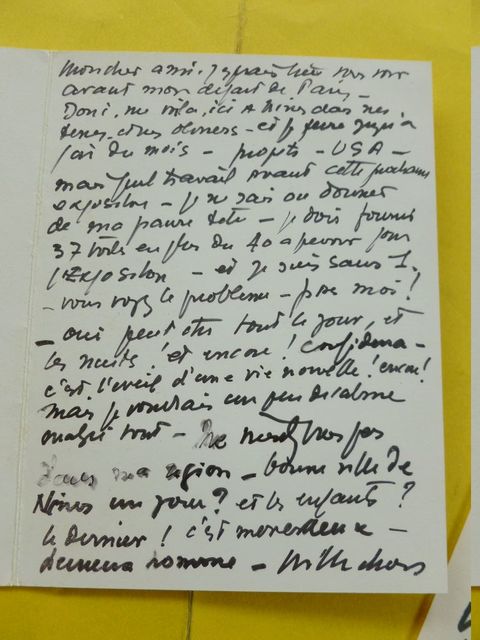 mon cher ami. J'espérais bien vous voir
avant mon départ de Paris -
Donc, me voilà, ici à Nîmes dans mes
terres, et mes oliviers - et j'y jusqu'à
fin du mois - projets - USA -
mais quel travail avant cette prochaine
exposition - je ne sais où donner
de ma pauvre tête - je dois fournir
37 toiles en plus du 40 à pour
l'Exposition - et je suis sans 1.
- vous voyez le problème - pour moi!
- oui peut être tout le jour, et
les nuits! et encore! confidence -
c'est l'éveil d'une vie nouvelle! encore!
mais je voudrais un peu de calme
malgré tout - Ne venez vous pas
dans ma région - bonne ville de
Nîmes un jour? et les enfants?
le dernier! c'est merveilleux -